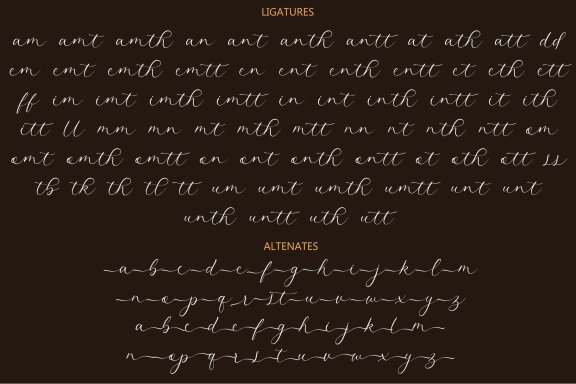 LIGATURES
am amt amth an ant anth antt at ath att dd
em emt emth emtt en ent enth entt et eth ett
ff im imt imth imtt in int inth intt it ith
itt ll mm mn mt mth mtt nn nt nth ntt om
omt omth omtt on ont onth ontt ot oth ott ss
tb tk th tl tt um umt umth umtt unt unt
unth untt uth utt
ALTENATES
a b c d e f g h i j k l m
n o p q r s t u v w x y z
a b c d e f g h i j k l m
n o p q r s t u v w x y z